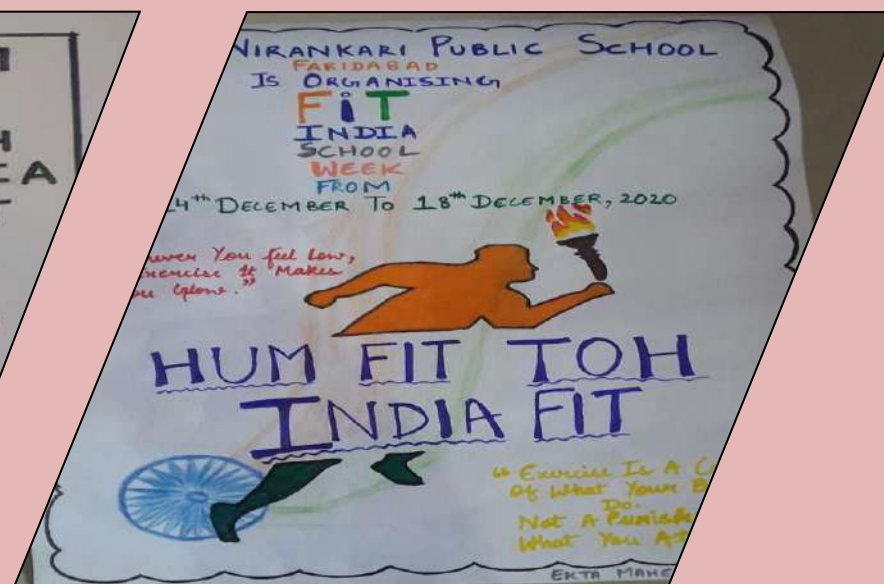 A
NIRANKARI PUBLIC SCHOOL
FARIDABAD
IS ORGANISING
FiT
INDIA
SCHOOL
WEEK
FROM
4th DECEMBER TO 18th DECEMBER, 2020
You feel Low,
Exercise It Makes
Glone."
HUM FIT TOH
INDIA FIT
" Exercise Is A
Of What Your
Do.
Not A
What You
EKTA